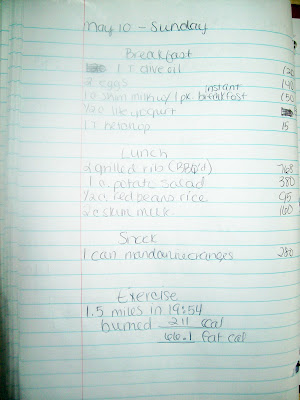 May 10 - Sunday
Breakfast
1 T olive oil 120
2 eggs 140
1 c skim milk w/ 1 pk. instant breakfast
1/2 c lite yogurt
1 T ketchup 15
Lunch
2 grilled rib (BBQ'd) 768
1 c. potato salad 380
1/2 c. red beans rice 95
2 c skim milk 160
Snack
1 can mandarine oranges 280
Exercise
1.5 miles in 19:54
burned 211 cal
66.1 fat cal